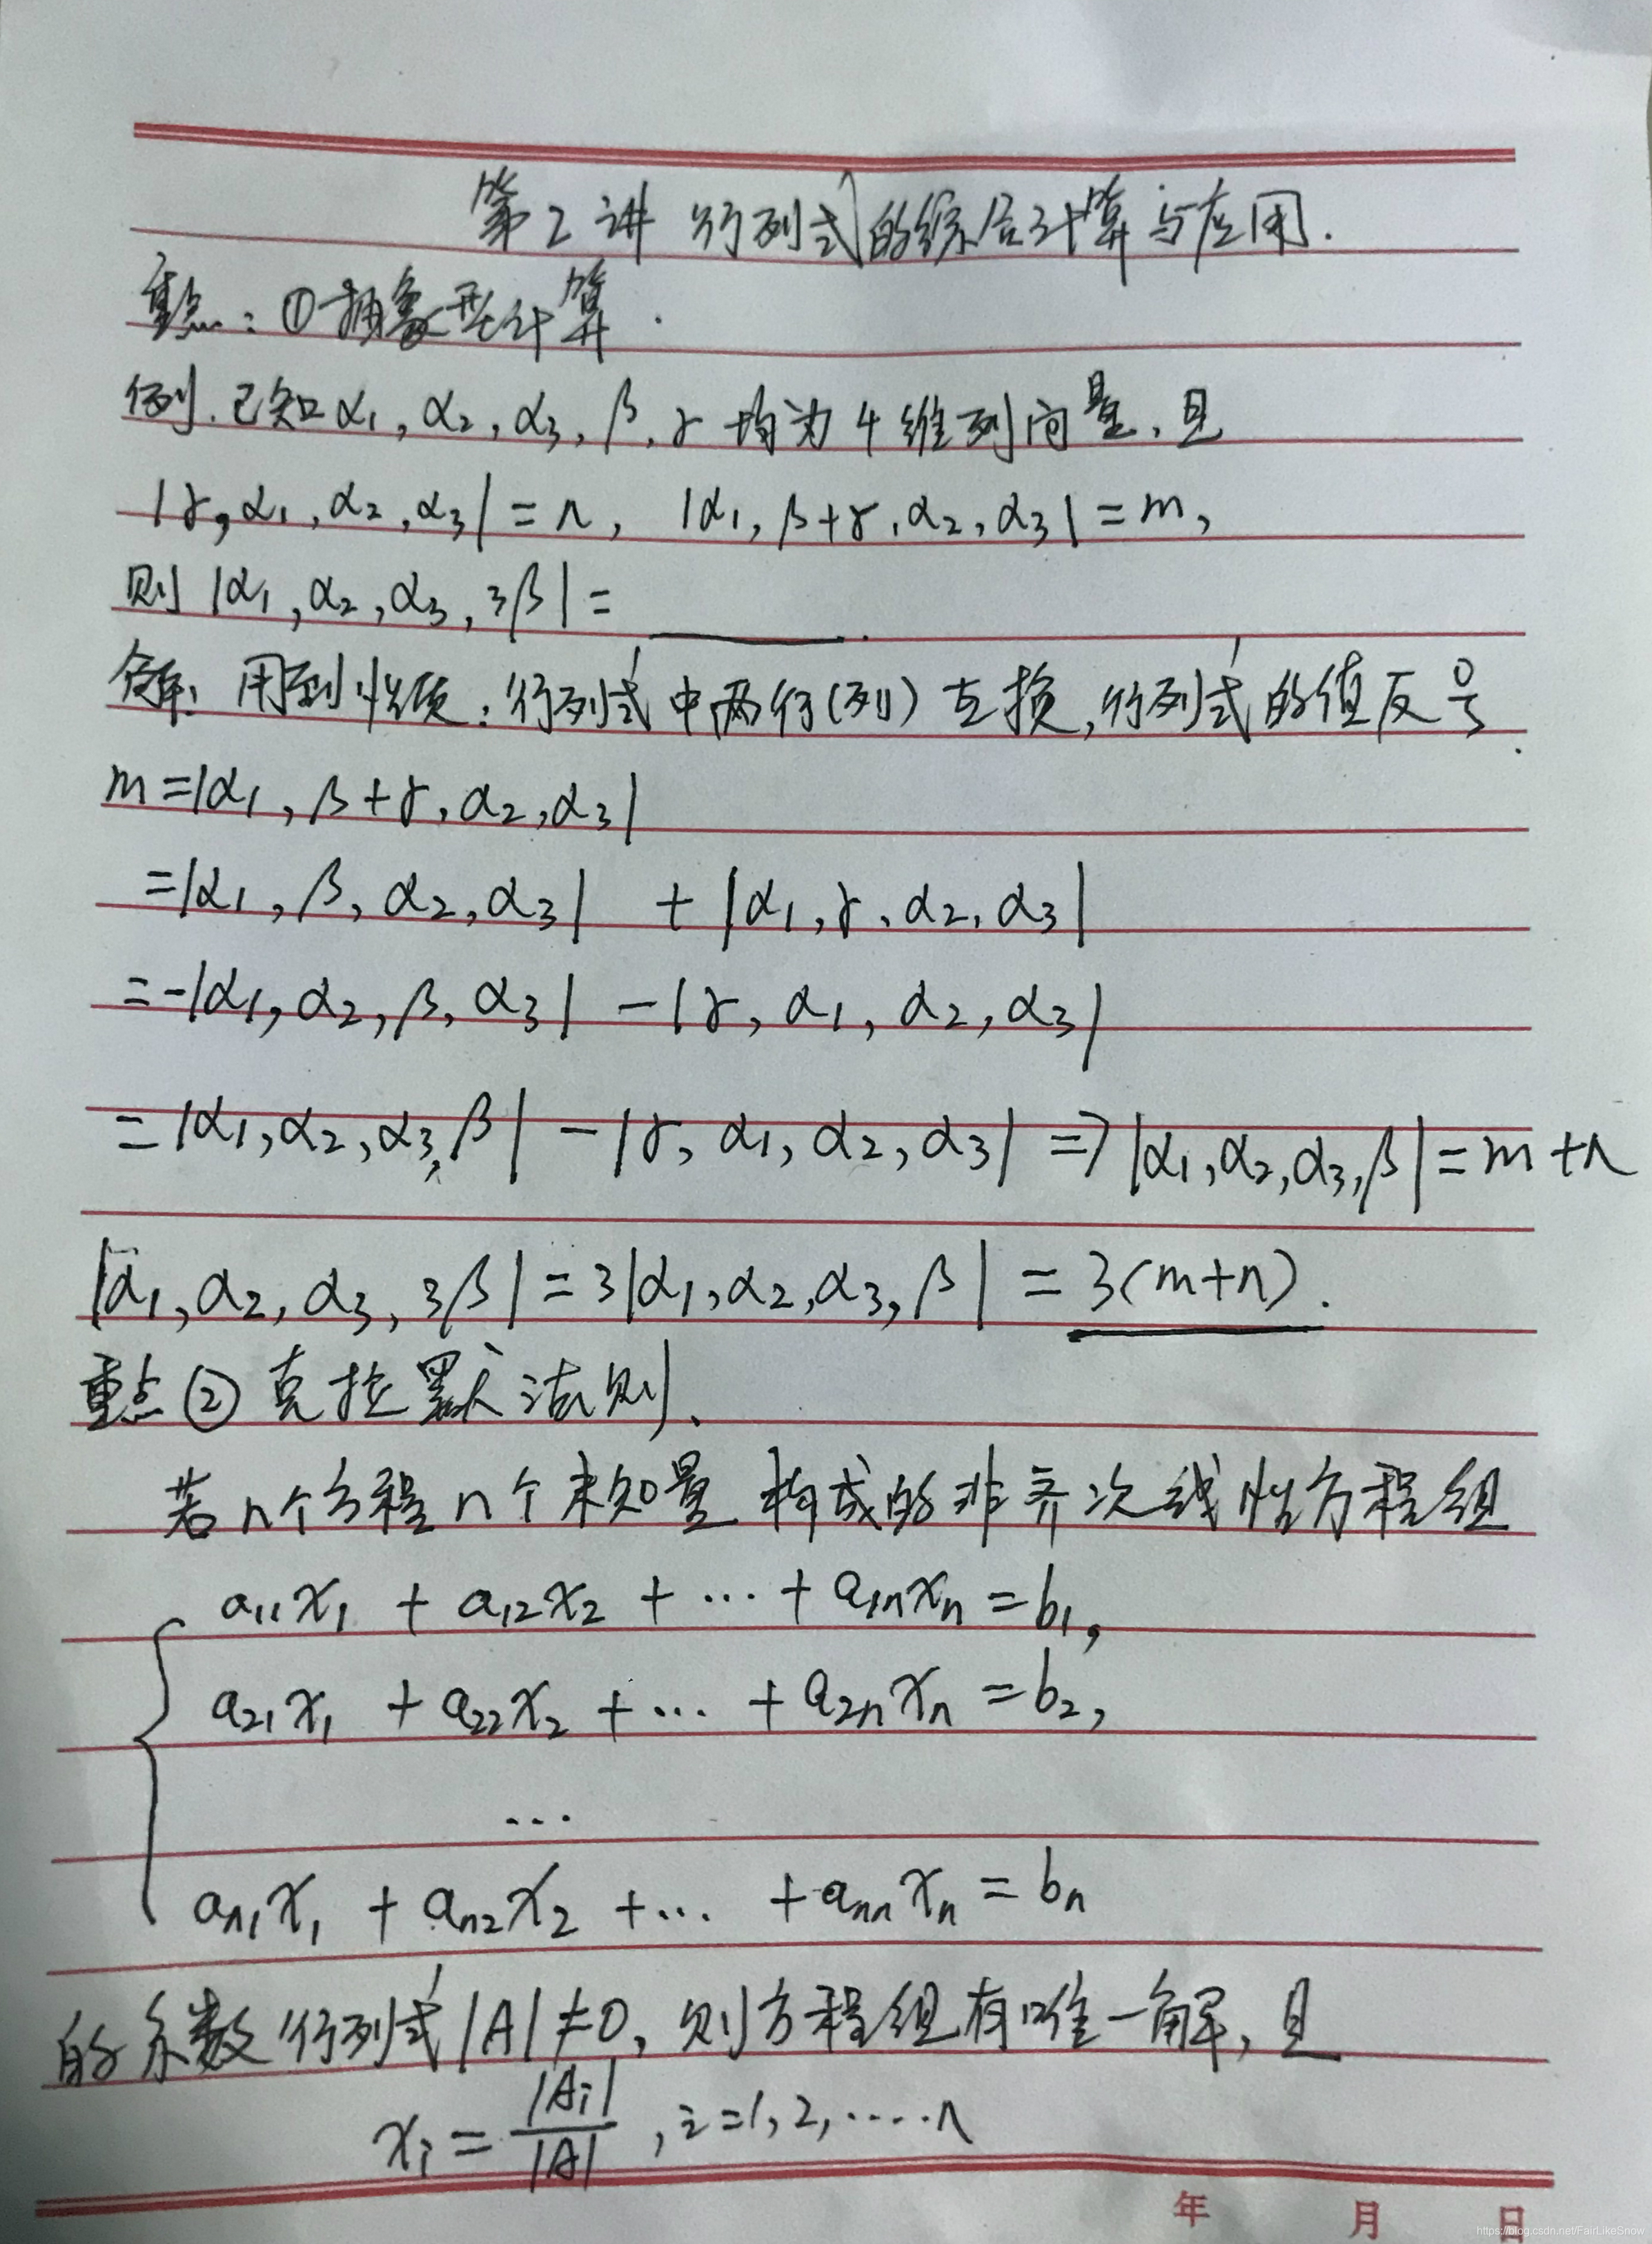 第2讲 行列式的综合计算与应用.
重点:①抽象型计算.
例.已知α₁,α₂,α₃,β,γ均为4维列向量,且
|γ,α₁,α₂,α₃|=n, |α₁,β+γ,α₂,α₃|=m,
则|α₁,α₂,α₃,3β|=______.
解:用到性质:行列式中两行(列)互换,行列式的值反号.
m=|α₁,β+γ,α₂,α₃|
=|α₁,β,α₂,α₃| + |α₁,γ,α₂,α₃|
=-|α₁,α₂,β,α₃| -|γ,α₁,α₂,α₃|
=|α₁,α₂,α₃,β| -|γ,α₁,α₂,α₃| ⇒|α₁,α₂,α₃,β|=m+n
|α₁,α₂,α₃,3β|=3|α₁,α₂,α₃,β|=3(m+n).
重点②克拉默法则.
若n个方程n个未知量构成的非齐次线性方程组
a₁₁x₁ + a₁₂x₂ + … + a₁ₙxₙ = b₁,
a₂₁x₁ + a₂₂x₂ + … + a₂ₙxₙ = b₂,
…
aₙ₁x₁ + aₙ₂x₂ + … + aₙₙxₙ = bₙ
的系数行列式|A|≠0,则方程组有唯一解,且
xᵢ = |Aᵢ|/|A| , i=1,2,……n
年 月 日
https://blog.csdn.net/FairLikeSnow